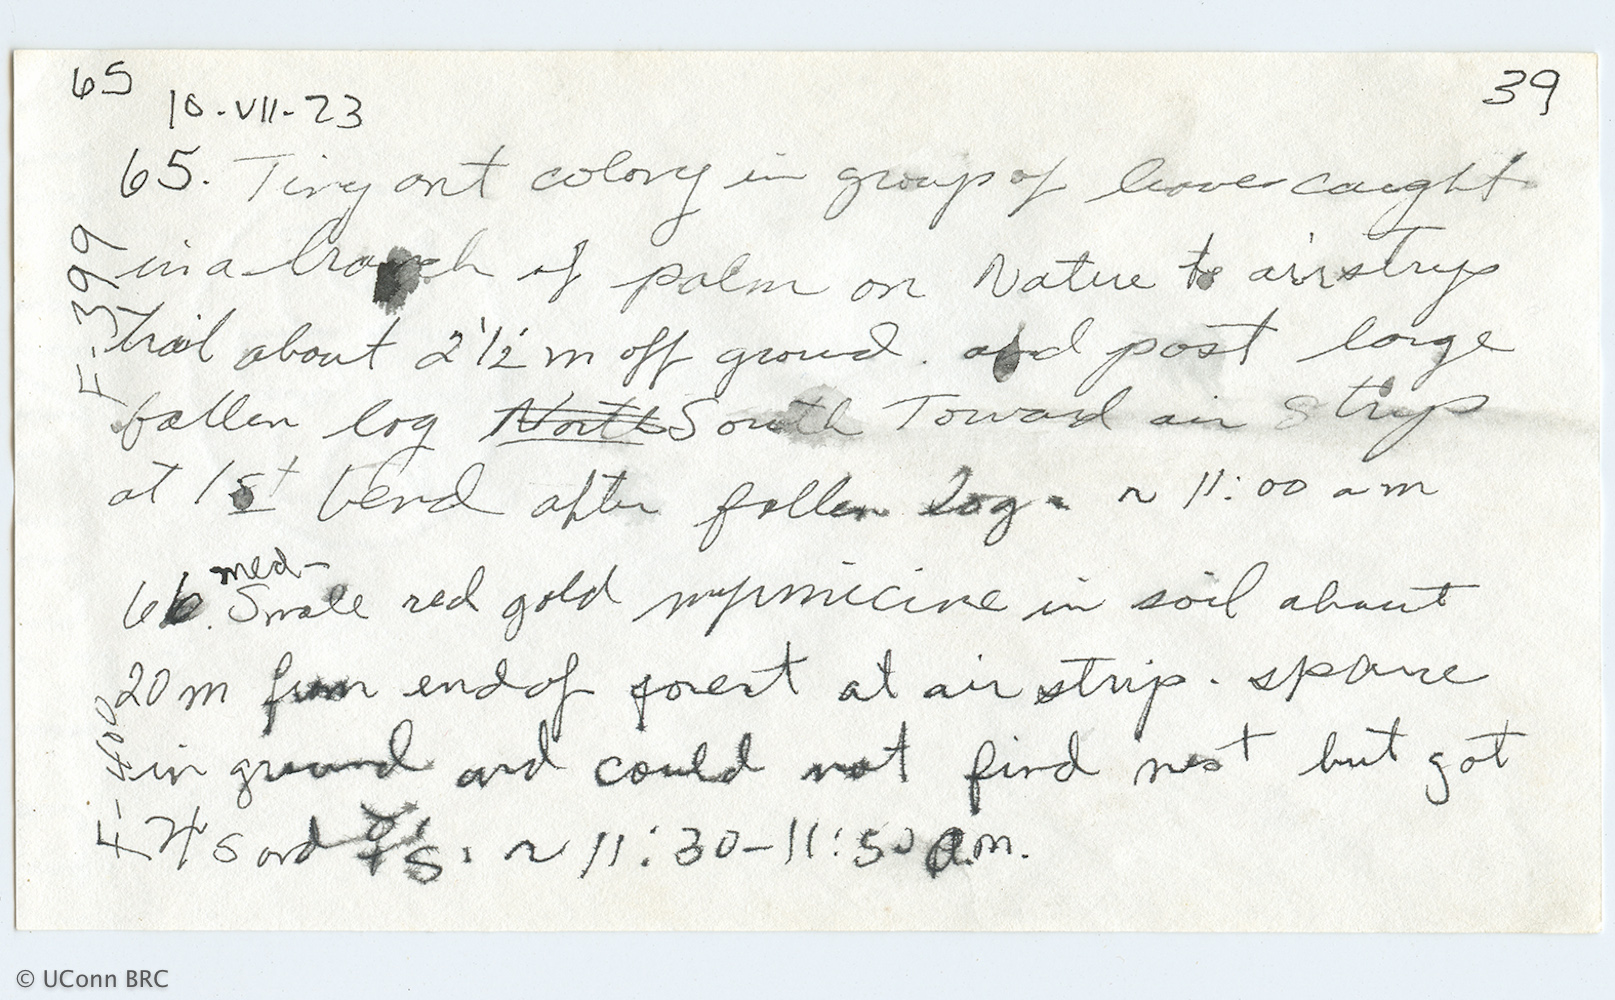 65
39
10-VII-73
65. Tiny ant colony in group of leaves caught
in a branch of palm on Nature to airstrip
trail about 2 1/2 m off ground. and past large
fallen log North South Toward air strip
at 1st bend after fallen log. ~ 11:00 am
F-399
med-
66. Small red gold myrmicine in soil about
20 m from end of forest at air strip. sparse
in ground and could not find nest but got
☿'s and ♀'s. ~ 11:30-11:50 a.m.
F-400
© UConn BRC